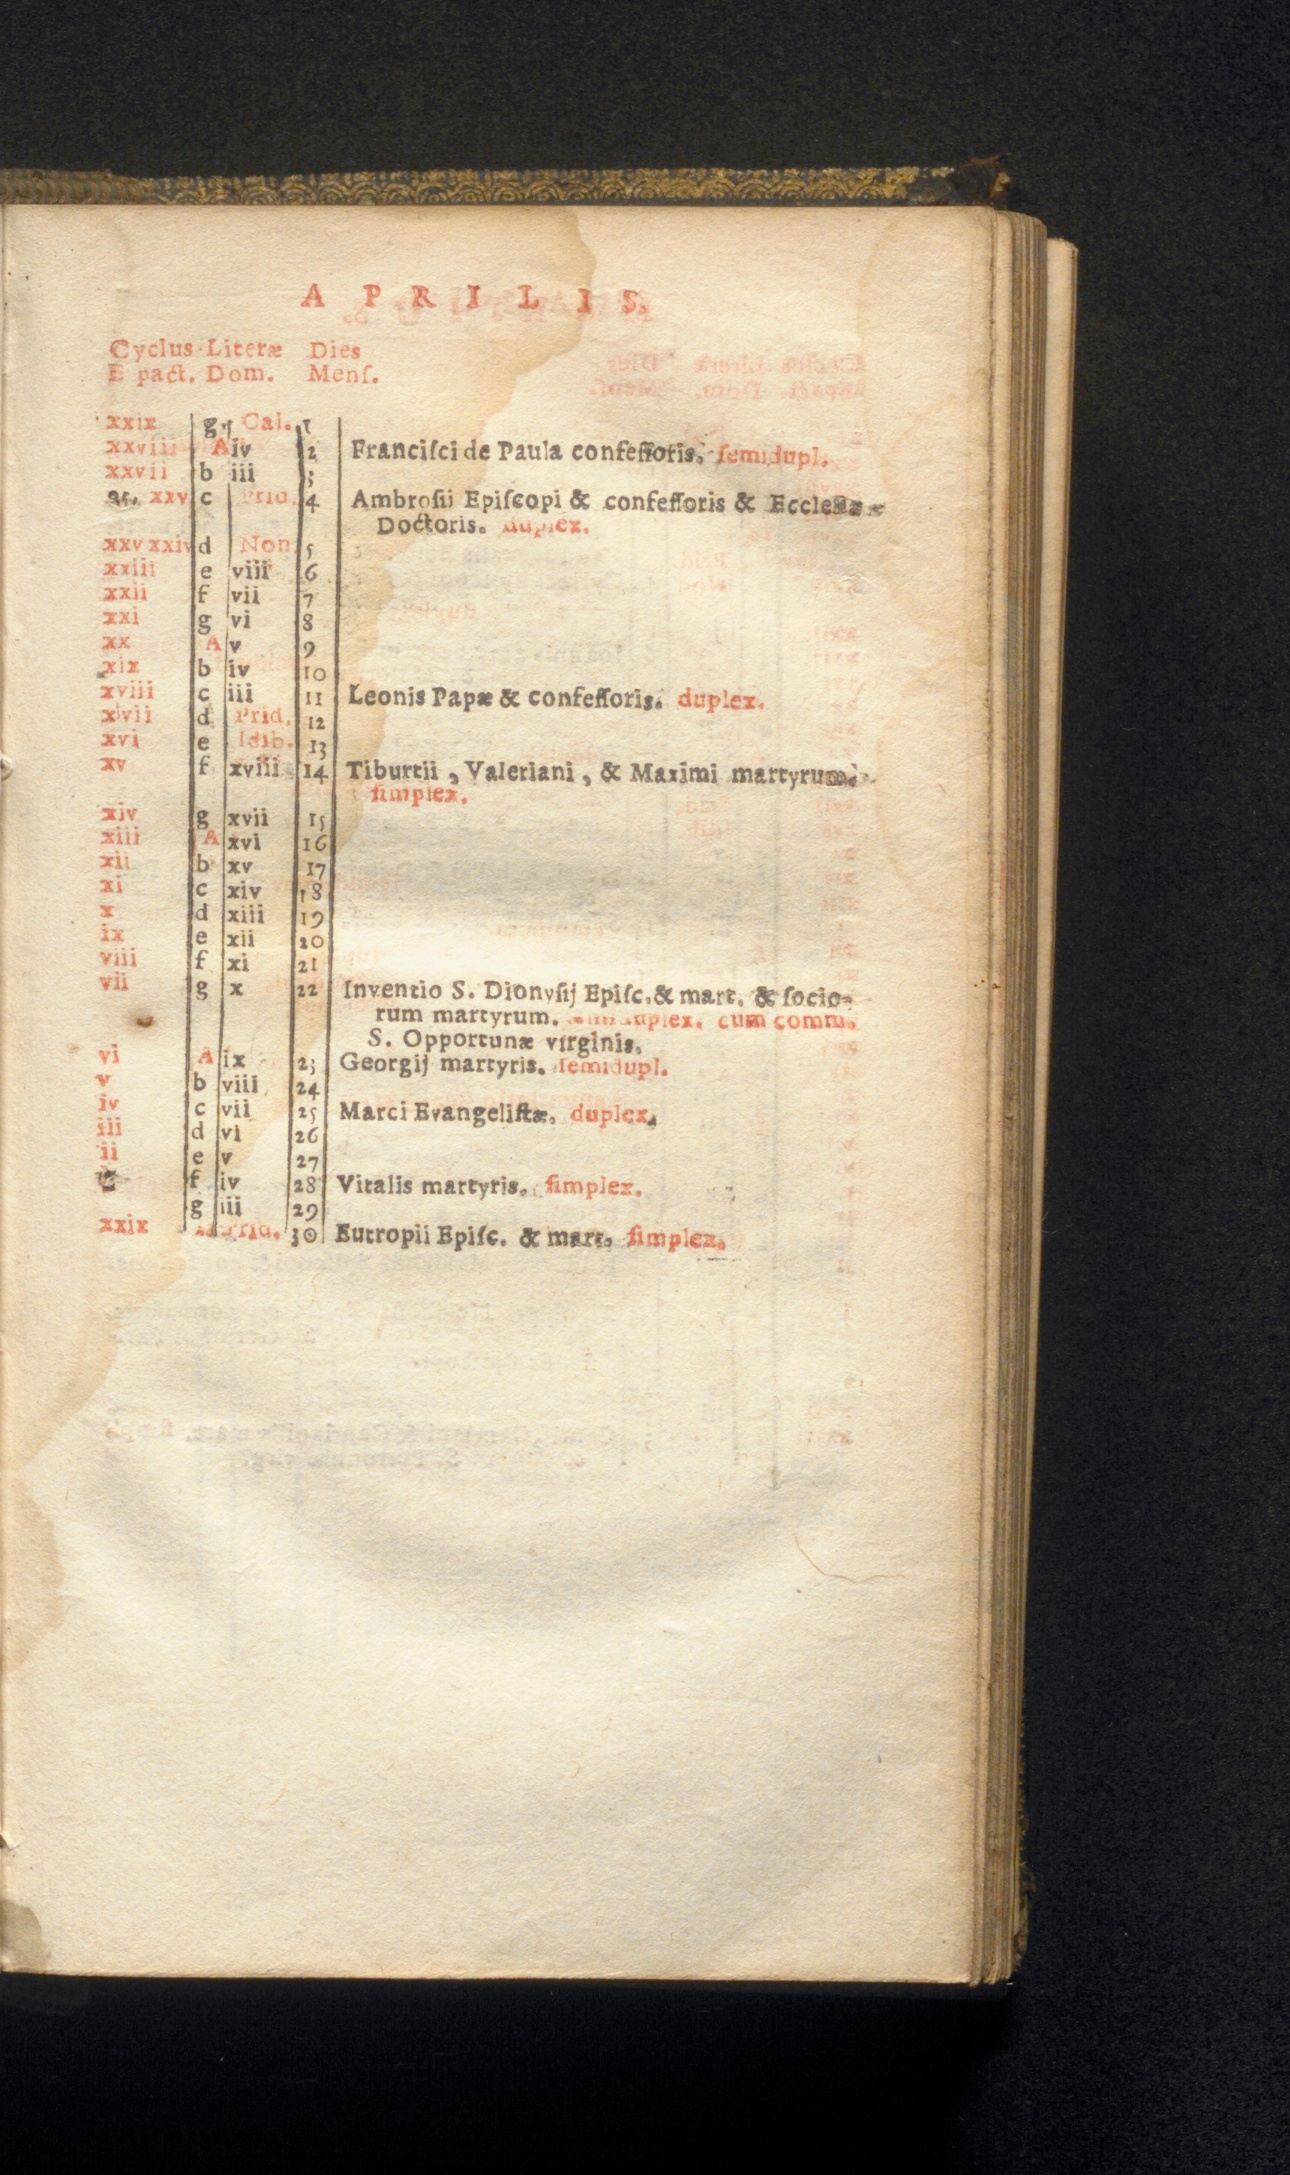 APRILIS.
Cyclus Literæ Dies
Epact. Dom. Menſ.
xxix g Cal. 1
xxviii A iv 2 Franciſci de Paula confeſſoris. ſemidupl.
xxvii b iii 3
xxv c Prid. 4 Ambroſii Epiſcopi & confeſſoris & Eccleſiæ
Doctoris. duplex.
xxv xxiv d Non. 5
xxiii e viii 6
xxii f vii 7
xxi g vi 8
xx A v 9
xix b iv 10
xviii c iii 11 Leonis Papæ & confeſſoris. duplex.
xvii d Prid. 12
xvi e Idib. 13
xv f xviii 14 Tiburtii, Valeriani, & Maximi martyrum.
ſimplex.
xiv g xvii 15
xiii A xvi 16
xii b xv 17
xi c xiv 18
x d xiii 19
ix e xii 20
viii f xi 21
vii g x 22 Inventio S. Dionyſij Epiſc. & mart. & ſocio-
rum martyrum. ſemiduplex. cum comm.
S. Opportunæ virginis.
vi A ix 23 Georgij martyris. ſemidupl.
v b viii 24
iv c vii 25 Marci Evangeliſtæ. duplex.
iii d vi 26
ii e v 27
f iv 28 Vitalis martyris. ſimplex.
g iii 29
xxix Prid. 30 Eutropii Epiſc. & mart. ſimplex.